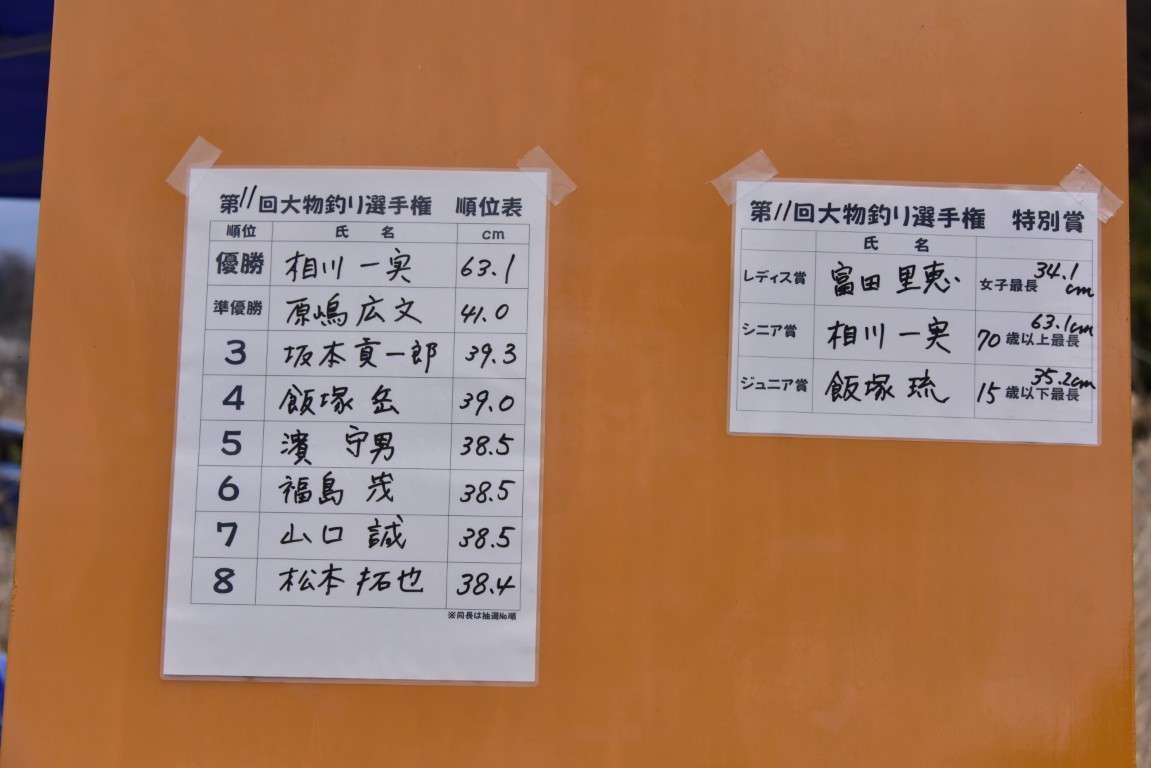 第11回大物釣り選手権 順位表
順位 氏 名 cm
優勝 相川 一実 63.1
準優勝 原嶋 広文 41.0
3 坂本 貢一郎 39.3
4 飯塚 岳 39.0
5 濱 守男 38.5
6 福島 茂 38.5
7 山口 誠 38.5
8 松本 拓也 38.4
※同長は抽選№順
第11回大物釣り選手権 特別賞
氏 名
レディス賞 富田 里恵 女子最長 34.1cm
シニア賞 相川 一実 70歳以上最長 63.1cm
ジュニア賞 飯塚 琉 15歳以下最長 35.2cm